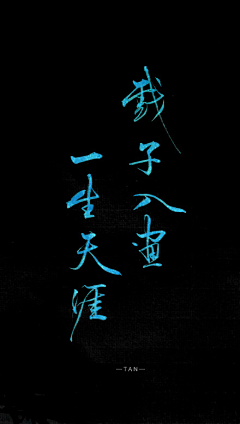 戲子入畫
一生天涯
—TAN—